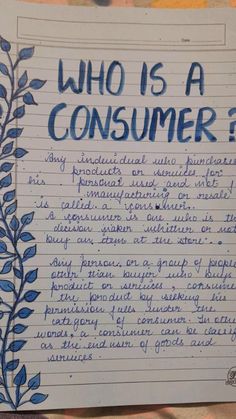 Date
WHO IS A
CONSUMER?
Any individual who purchase
products or services for
his personal used and not f
manufacturing or resale
is called a consumer.
A consumer is one who is the
decision maker whether or not
buy an item at the store..
Any person, or a group of people
other than buyer who buys
product or services, consume
the product by seeking his
permission falls under the
category of consumer. In othe
words, a consumer can be
as the end user of goods and
services.